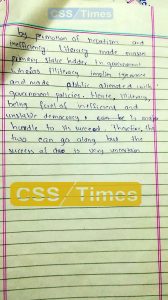 CSS Times
by promotion of
and
inefficiency literacy made
primary stake holder in government
whereas illiteracy implies ignorance
and made public alienated with
government policies. Hence, illiteracy,
being fuel of inefficient and
unstable democracy, can be a major
hurdle to its succeed. Therefore, the
two can go along but the
success of is very uncertain
CSS Times